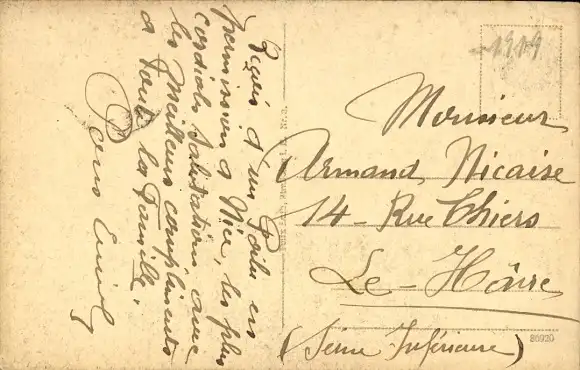 Reçois d'un Poilu en
permission à Nice, les plus
cordiales salutations avec
les Meilleurs compliments
à toute la Famille.
1919
Monsieur
Armand Nicaise
14 - Rue Thiers
Le - Hâvre
(Seine Inférieure)
86920